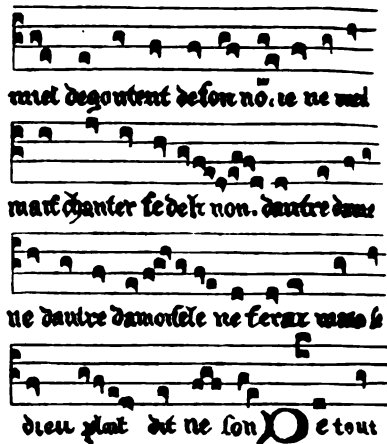 miel degoutent de son nō. ie ne weil
mais chanter se de li non. dautre dame
ne dautre damoisele ne ferai mais se
dieu plaist dit ne son De tout